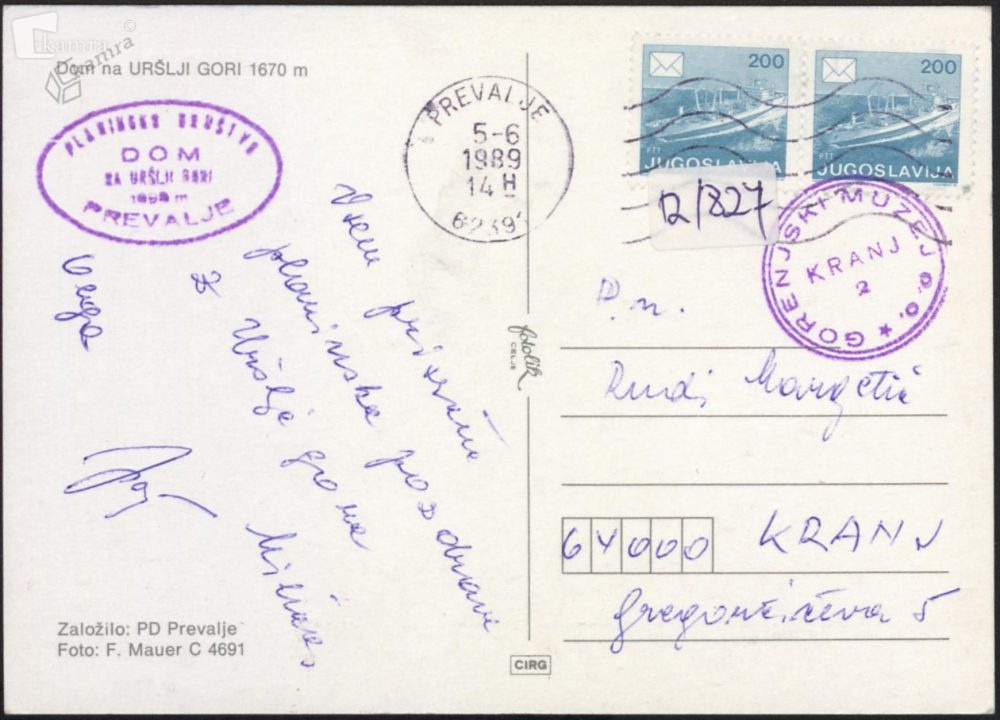 kamra
kamra
Dom na URŠLJI GORI 1670 m
PLANINSKO DRUŠTVO
DOM
NA URŠLJI GORI
PREVALJE
PREVALJE
5-6
1989
14 H
200
PTT
JUGOSLAVIJA
200
PTT
JUGOSLAVIJA
12/827
GORENJSKI MUZEJ o. o.
KRANJ
2
Vsem
prisrčne
planinske pozdrave
z Uršlje gore
fotolik
CELJE
Rudi Margetič
64000 KRANJ
Gregorčičeva 5
Založilo: PD Prevalje
Foto: F. Mauer C 4691
CIRG